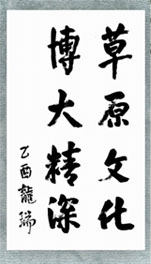 草原文化
博大精深
乙酉龍瑞